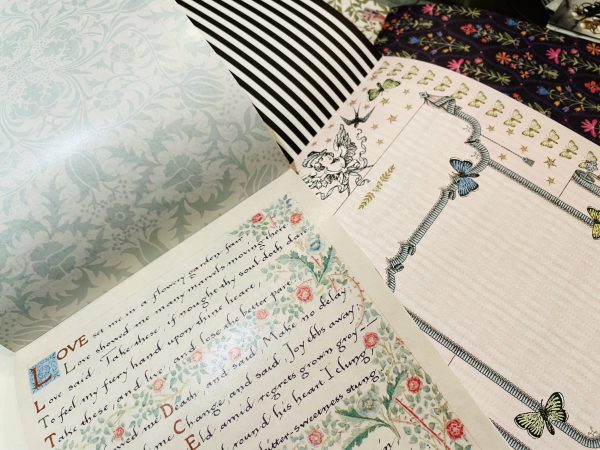 LOVE set me in a flowery garden fair
Love showed me many marvels moving there
Love said, Take these, if nought thy soul doth
To feel my fiery hand upon thine heart,
Take these, and live, and lose the better part.
me Death, and said, Make no delay
me Change and said, Joy ebbs away,
Eld amid regrets grown grey
round his heart I clung,
sweetness stung